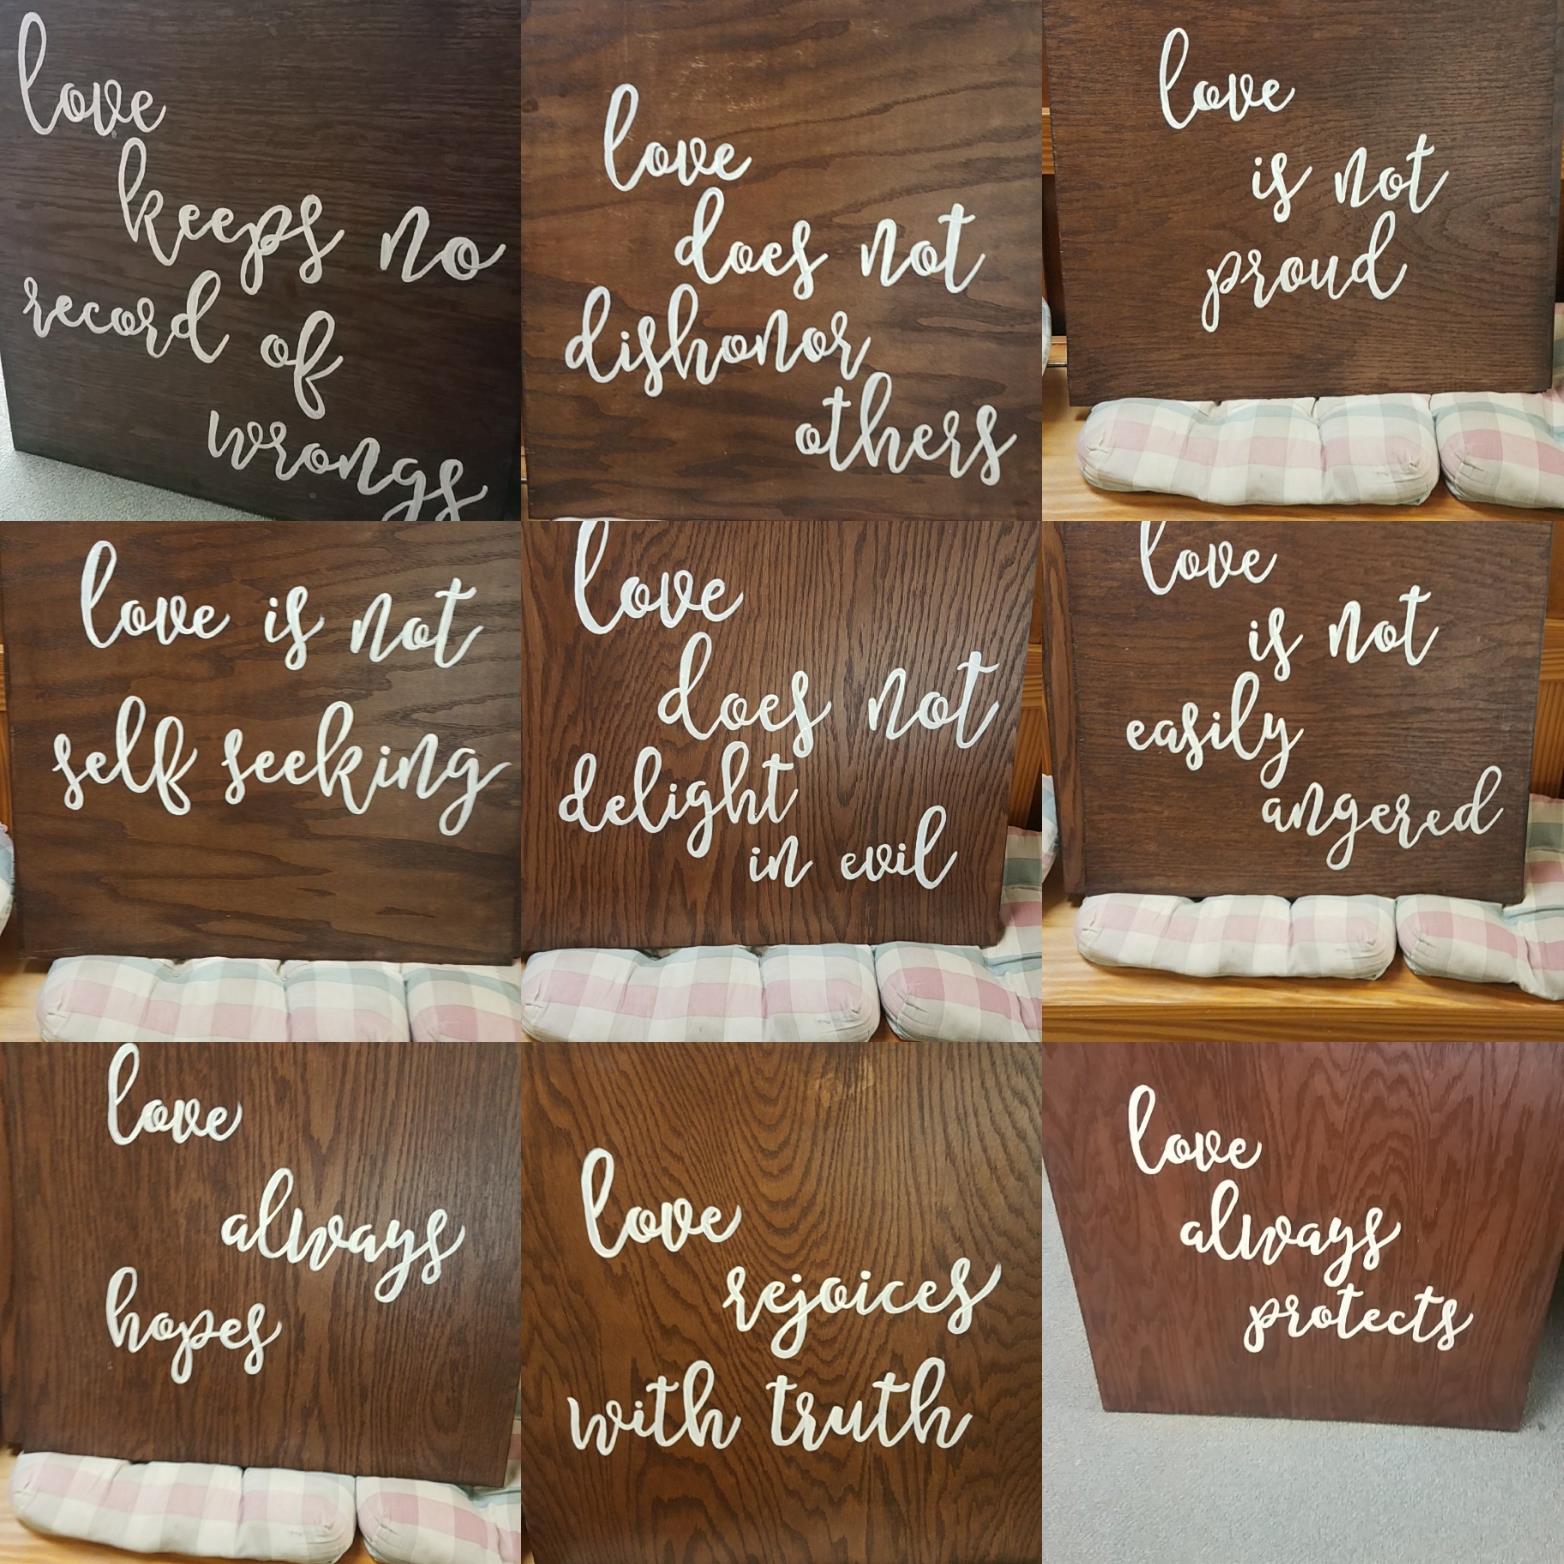 love
keeps no
record of
wrongs
love
does not
dishonor
others
love
is not
proud
love is not
self seeking
love
does not
delight
in evil
love
is not
easily
angered
love
always
hopes
love
rejoices
with truth
love
always
protects